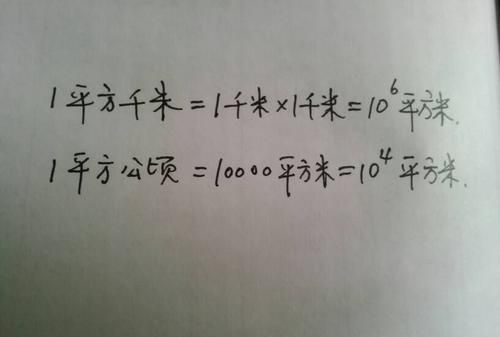 1平方千米=1千米×1千米=10⁶平方米.
1平方公顷=10000平方米=10⁴平方米.